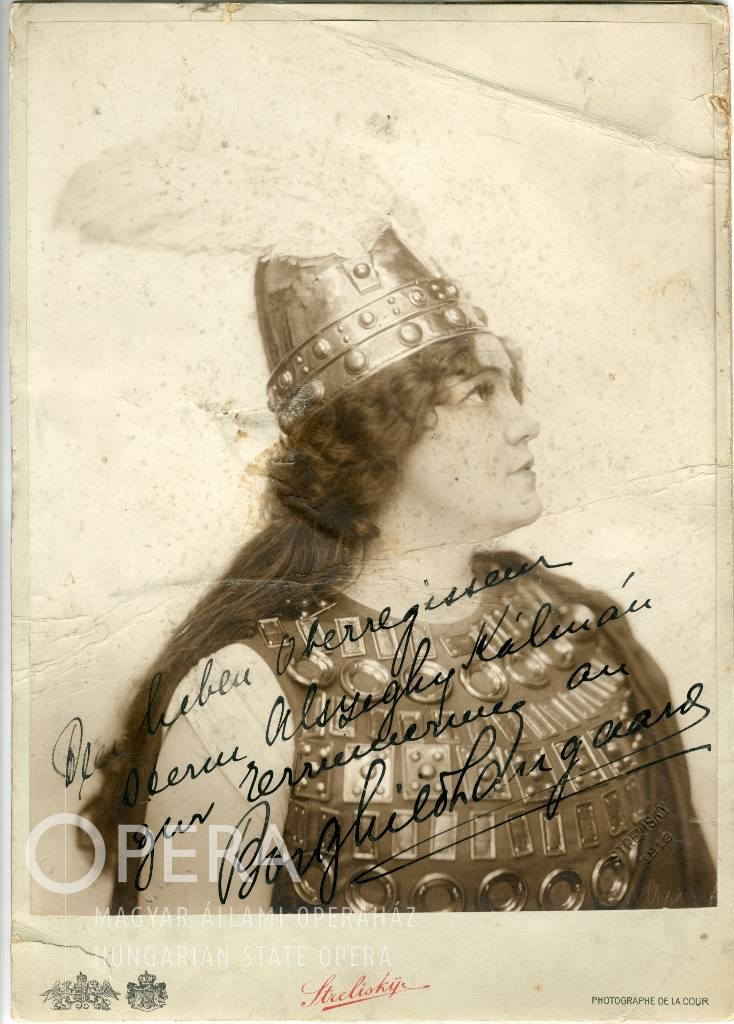 Den lieben Oberregisseur
Herrn Alszeghy Kálmán
zur Errinnerung an
Borghild Langaard
STRELISKY
OPERA
MAGYAR ÁLLAMI OPERAHÁZ
HUNGARIAN STATE OPERA
Streliskÿ
PHOTOGRAPHE DE LA COUR